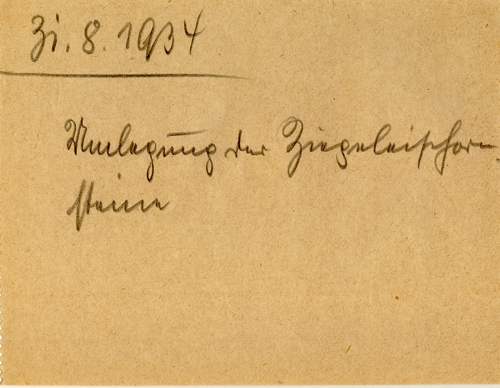 Zi. 8. 1934
Umlegung der Ziegeleischorn-
steine